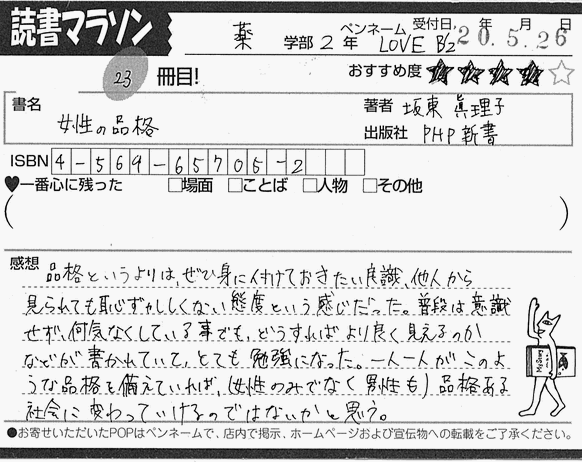 読書マラソン
薬 学部 2 年 ペンネーム LOVE B'z 受付日 20年5月26日
23 冊目! おすすめ度 ★★★★☆
書名 女性の品格
著者 坂東 眞理子
出版社 PHP新書
ISBN 4-569-65705-2
♥一番心に残った □場面 □ことば □人物 □その他
( )
感想 品格というよりは、ぜひ身に付けておきたい良識、他人から
見られても恥ずかしくない態度という感じだった。普段は意識
せず、何気なくしている事でも、どうすればより良く見えるのか
などが書かれていて、とても勉強になった。一人一人がこのよ
うな品格を備えていれば、(女性のみでなく男性も)品格ある
社会に変わっていけるのではないかと思う。
●お寄せいただいたPOPはペンネームで、店内で掲示、ホームページおよび宣伝物への転載をご了承ください。